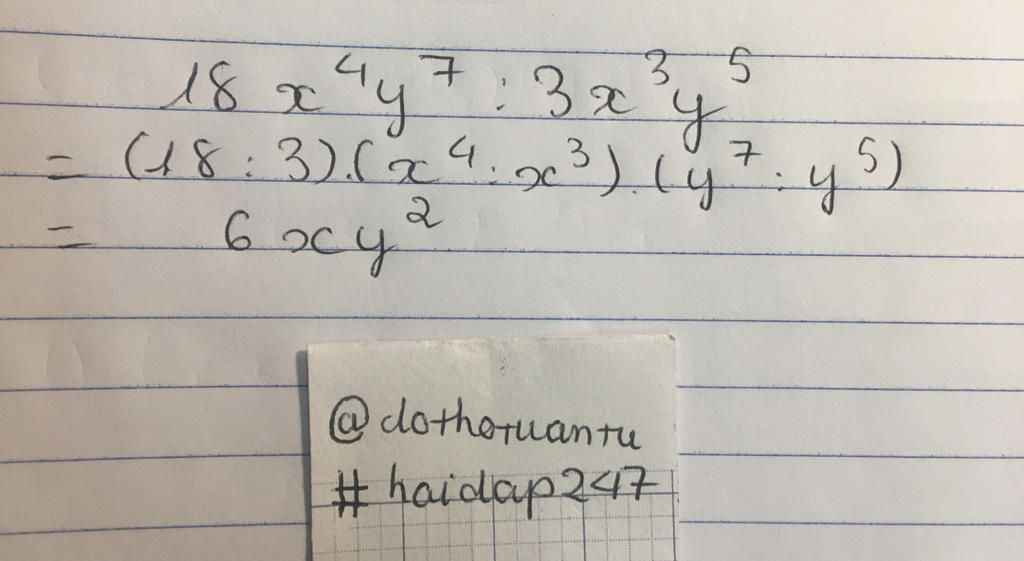 18 x⁴y⁷ : 3x³y⁵
= (18 : 3).(x⁴ : x³).(y⁷ : y⁵)
= 6xy²
@dothotuantu
#haidap247